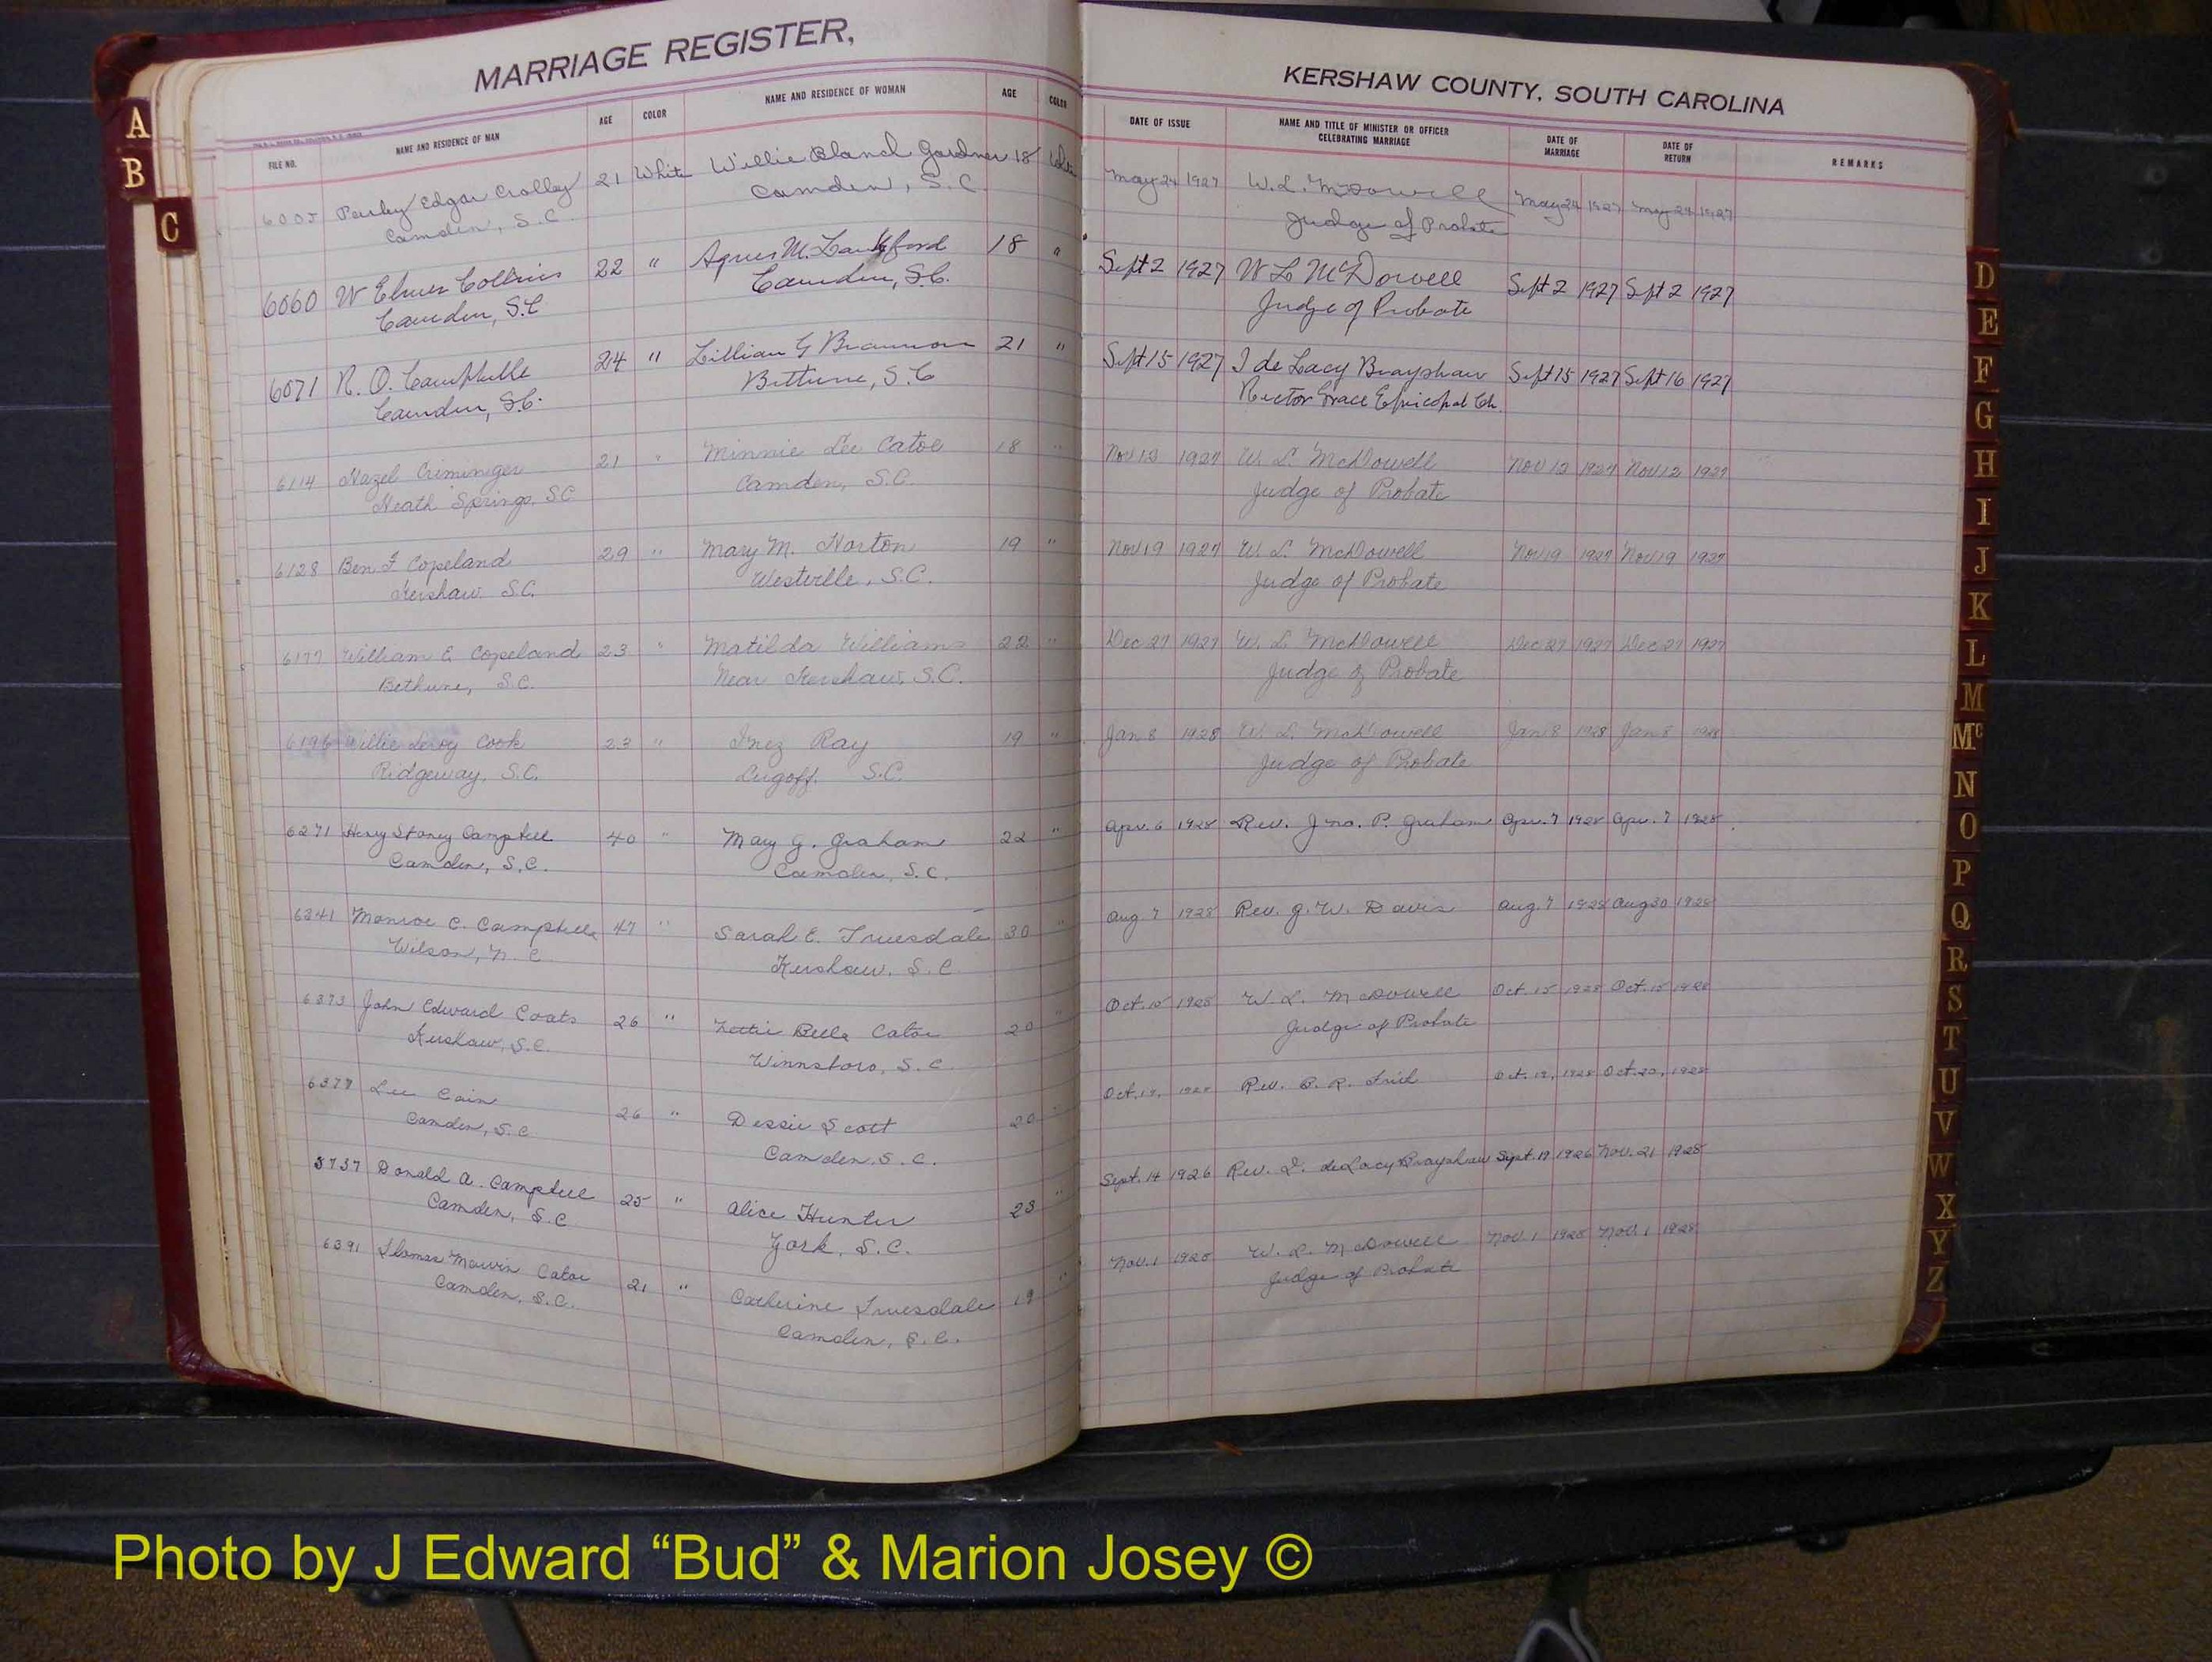 MARRIAGE REGISTER,
KERSHAW COUNTY, SOUTH CAROLINA
FILE NO. NAME AND RESIDENCE OF MAN AGE COLOR NAME AND RESIDENCE OF WOMAN AGE COLOR DATE OF ISSUE NAME AND TITLE OF MINISTER OR OFFICER CELEBRATING MARRIAGE DATE OF MARRIAGE DATE OF RETURN REMARKS
Edgar Crolley 21 White Willie Gardner 18 White May 24 1927 W. L. McDowell May 24 1927 May 24 1927
Camden, S.C. Camden, S.C. Judge of Probate
6060 W Elmer Collins 22 " Agnes M. 18 " Sept 2 1927 W L McDowell Sept 2 1927 Sept 2 1927
Camden, S.C. Camden, S.C. Judge of Probate
6071 R. O. 24 " Lillian G 21 " Sept 15 1927 de Lacy Brayshaw Sept 15 1927 Sept 16 1927
Camden, S.C. Bethune, S.C Rector Grace Episcopal Ch.
6114 Hazel Criminger 21 " Minnie Lee Catoe 18 " Nov 12 1927 W. L. McDowell Nov 12 1927 Nov 12 1927
Heath Springs, SC Camden, S.C. Judge of Probate
6128 Ben F Copeland 29 " Mary M. Horton 19 " Nov 19 1927 W. L. McDowell Nov 19 1927 Nov 19 1927
Kershaw. S.C. Westville, S.C. Judge of Probate
6177 William E Copeland 23 " Matilda Williams 22 " Dec 27 1927 W. L. McDowell Dec 27 1927 Dec 27 1927
Bethune, S.C. Near Kershaw, S.C. Judge of Probate
6196 Willie Leroy Cook " Inez Ray 19 " Jan 8 1928 W. L. McDowell Jan 8 1928 Jan 8 1928
Ridgeway, S.C. Lugoff. S.C. Judge of Probate
6271 Campbell 40 " Mary G. Graham 22 " Apr. 6 1928 Rev. Jno. P. Graham Apr. 7 1928 Apr. 7 1928
Camden, S.C. Camden, S.C.
6341 Monroe C. Campbell 47 " Sarah E. Truesdale 30 " Aug 7 1928 Rev. J. W. Davis Aug. 7 1928 Aug 30 1928
Wilson, N.C. Kershaw, S.C
6373 John Edward Coats 26 " Belle Catoe 20 " Oct. 15 1928 W. L. McDowell Oct. 15 1928 Oct. 15 1928
Kershaw, S.C. Winnsboro, S.C Judge of Probate
Lee Cain 26 " Dessie Scott 20 " Oct. 19, 1928 Rev. Oct. 19, 1928 Oct. 20, 1928
Camden, S.C. Camden, S.C.
5737 Donald A. Campbell 25 " Alice Hunter 23 " Sept. 14 1926 Rev. deLacy Brayshaw Sept. 1926 Nov. 21 1928
Camden, S.C. York, S.C.
6391 Thomas Catoe 21 " Catherine Truesdale 19 " Nov. 1 1928 W. L. McDowell Nov. 1 1928 Nov. 1 1928
Camden, S.C. Camden, S.C. Judge of Probate
A
B
C
D
E
F
G
H
I
J
K
L
M
Mc
N
O
P
Q
R
S
T
U
V
W
X
Y
Z
Photo by J Edward “Bud” & Marion Josey ©